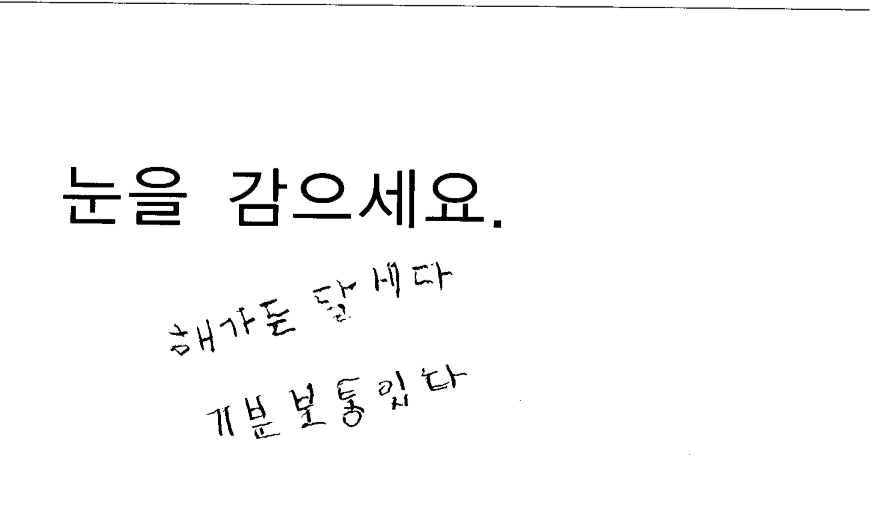 눈을 감으세요.
해가든 달 세다
기분보통있다